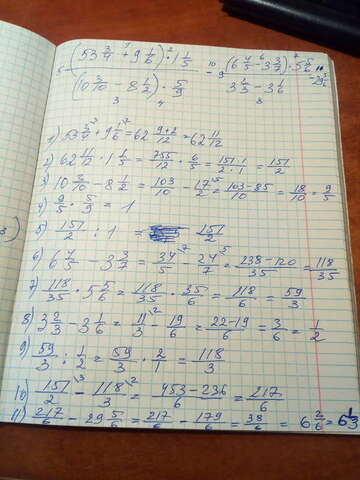 (53 3/4 + 9 1/6) · 1 1/5   (6 4/5 - 3 3/7) · 5 5/6
- 29 5/6
(10 3/10 - 8 1/2) · 5/9   3 2/3 - 3 1/6
1) 53 3/4 + 9 1/6 = 62 9+2/12 = 62 11/12
2) 62 11/12 · 1 1/5 = 755/12 · 6/5 = 151·1/2·1 = 151/2
3) 10 3/10 - 8 1/2 = 103/10 - 17/2 = 103-85/10 = 18/10 = 9/5
4) 9/5 · 5/9 = 1
5) 151/2 : 1 = 151/2
6) 6 4/5 - 3 3/7 = 34/5 - 24/7 = 238-120/35 = 118/35
7) 118/35 · 5 5/6 = 118/35 · 35/6 = 118/6 = 59/3
8) 3 2/3 - 3 1/6 = 11/3 - 19/6 = 22-19/6 = 3/6 = 1/2
9) 59/3 : 1/2 = 59/3 · 2/1 = 118/3
10) 151/2 - 118/3 = 453-236/6 = 217/6
11) 217/6 - 29 5/6 = 217/6 - 179/6 = 38/6 = 6 2/6 = 6 1/3